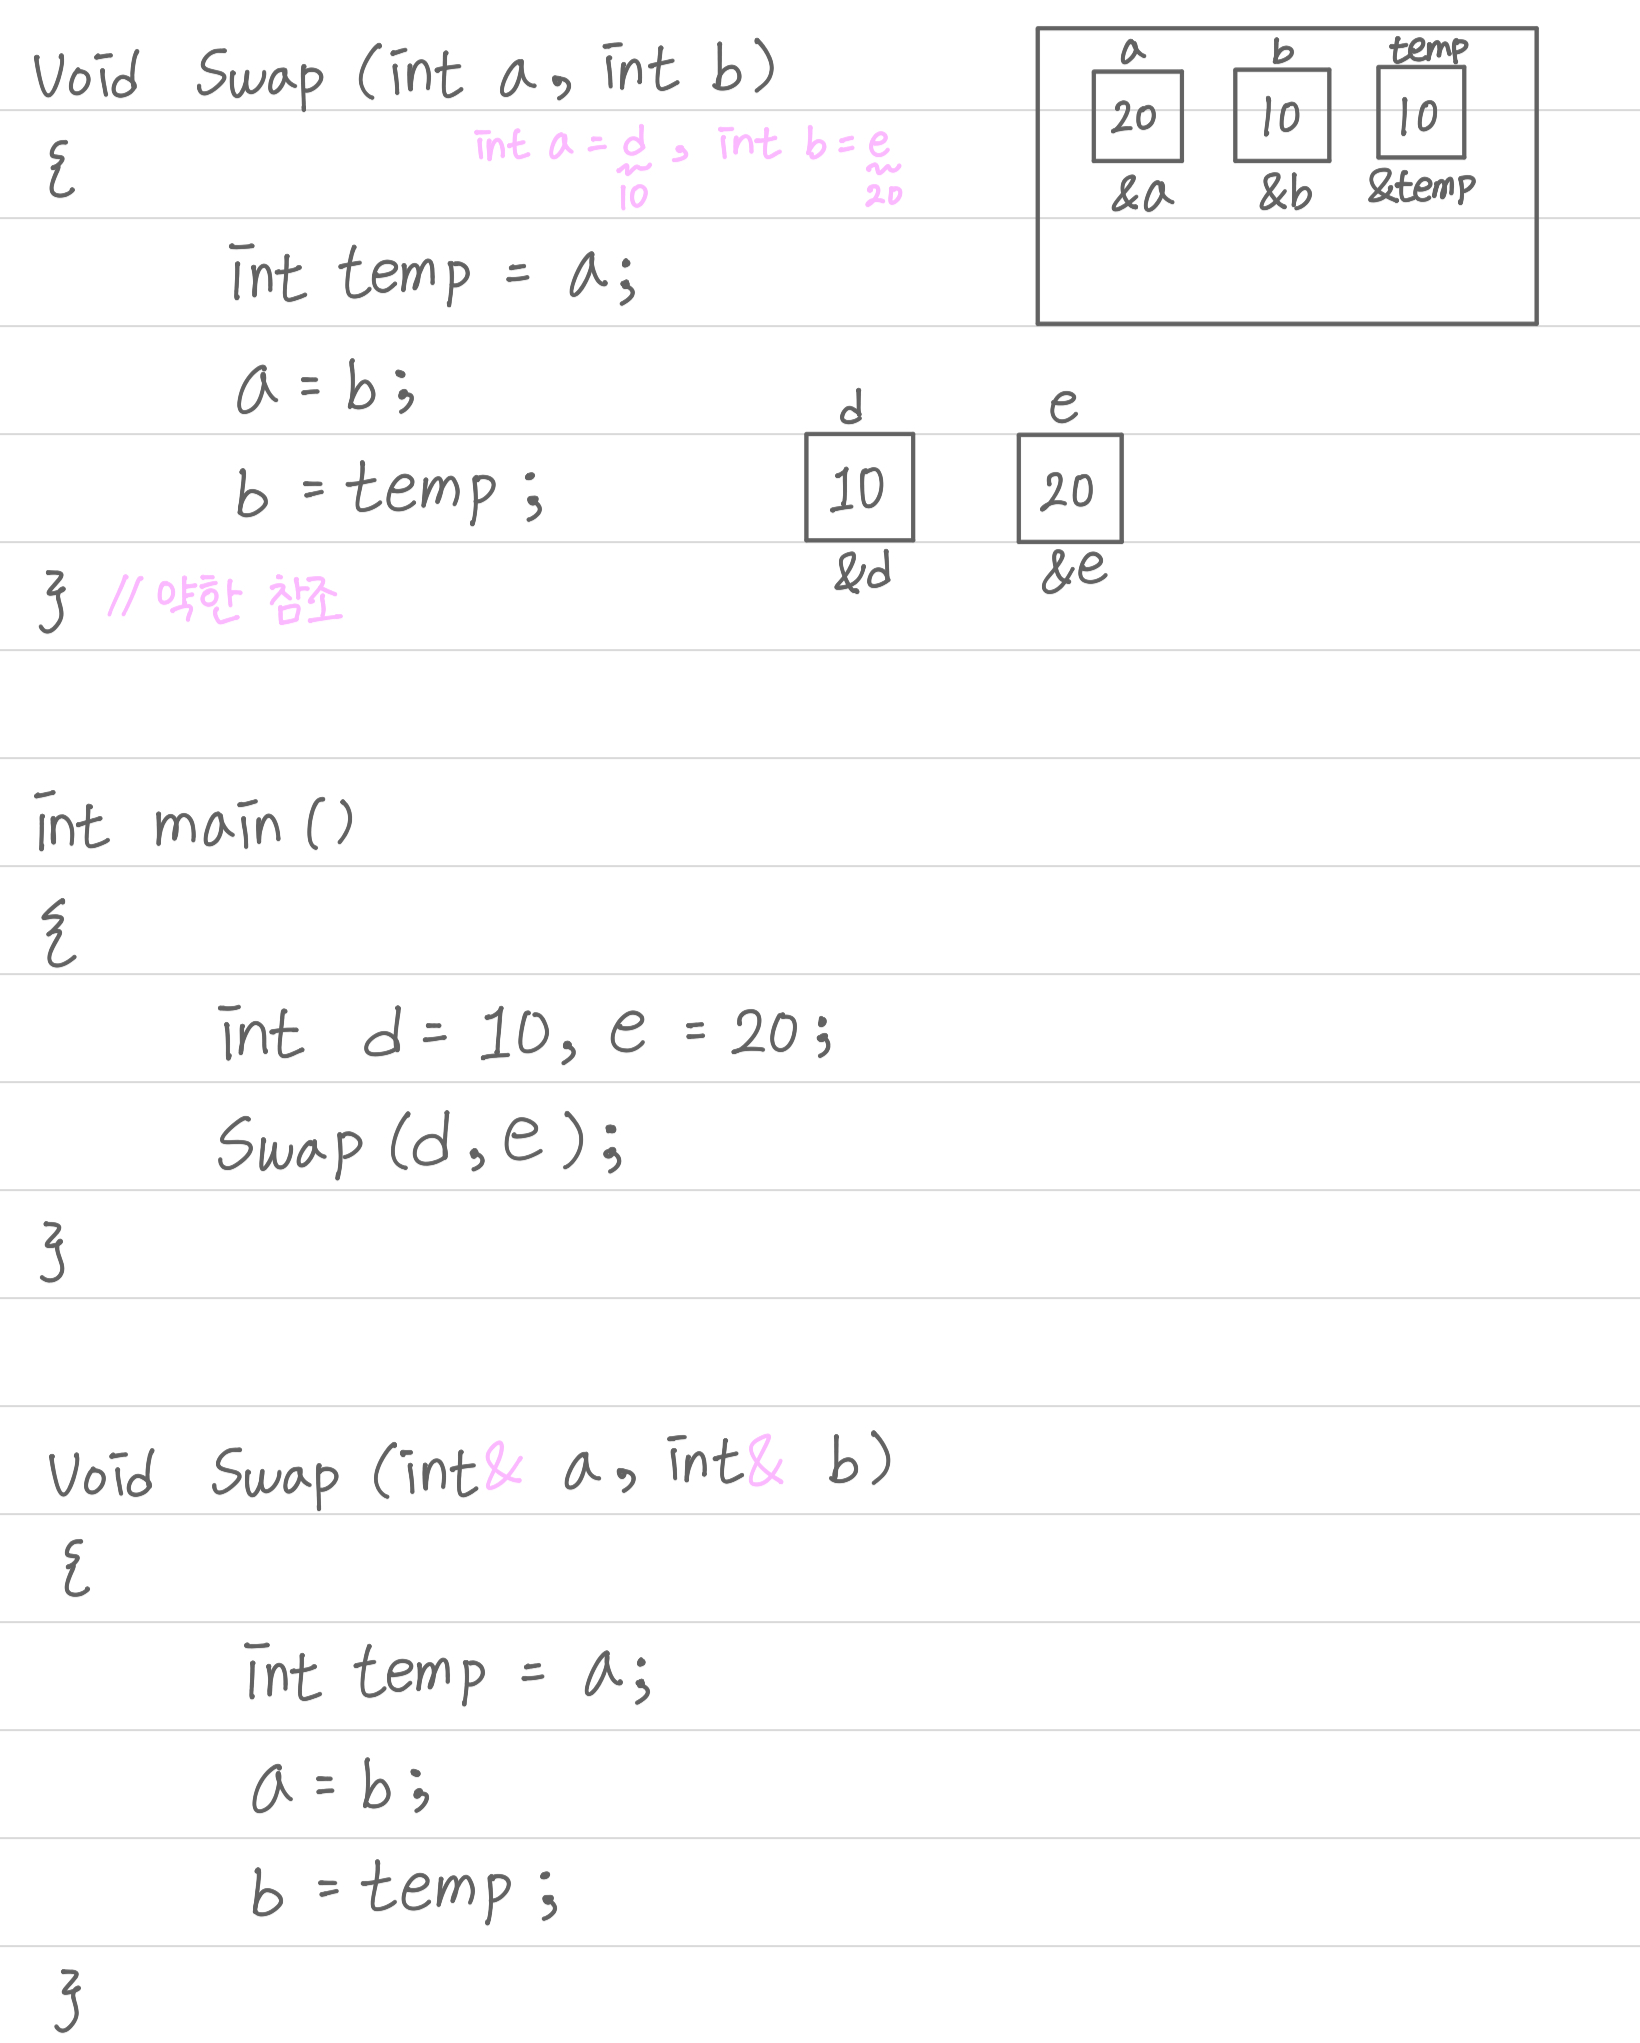 Void Swap (int a, int b)
{
int a = d, int b = e
10 20
int temp = a;
a = b;
b = temp;
} // 약한 참조
a b temp
20 10 10
&a &b &temp
d e
10 20
&d &e
int main()
{
int d = 10, e = 20;
Swap (d, e);
}
Void Swap (int& a, int& b)
{
int temp = a;
a = b;
b = temp;
}